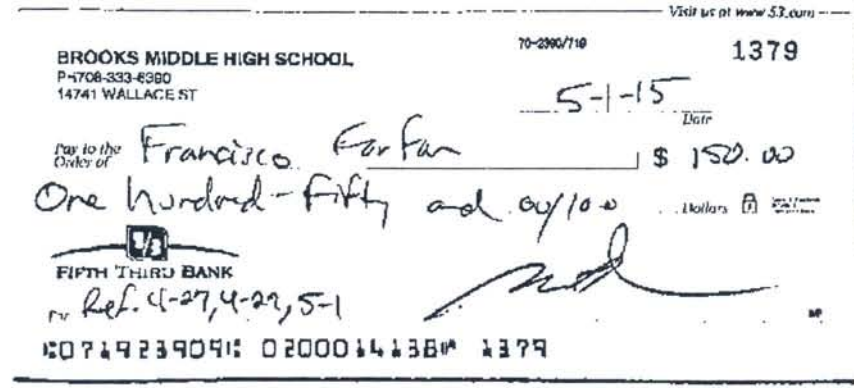 Visit us at www.53.com
BROOKS MIDDLE HIGH SCHOOL
70-2390/719
1379
PH708-333-6390
14741 WALLACE ST
5-1-15
Date
Pay to the Order of Francisco Farfan $ 150.00
One hundred-fifty and 00/100 Dollars
5/3
FIFTH THIRD BANK
For Ref. 4-27, 4-29, 5-1
MP
⑆071923909⑆ 0200014138⑈ 1379